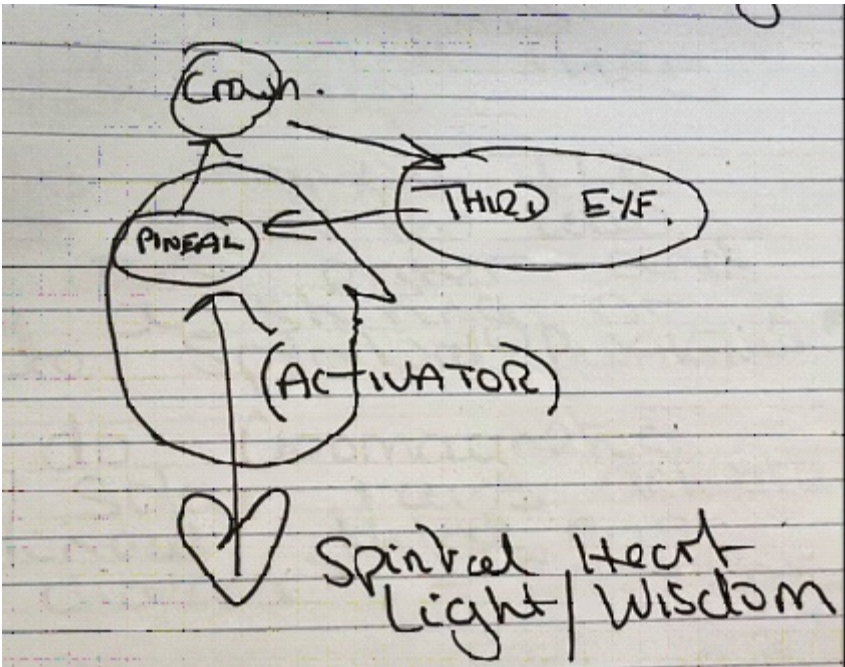 Crown.
THIRD EYE.
PINEAL
(ACTIVATOR)
Spiritual Heart
Light/Wisdom